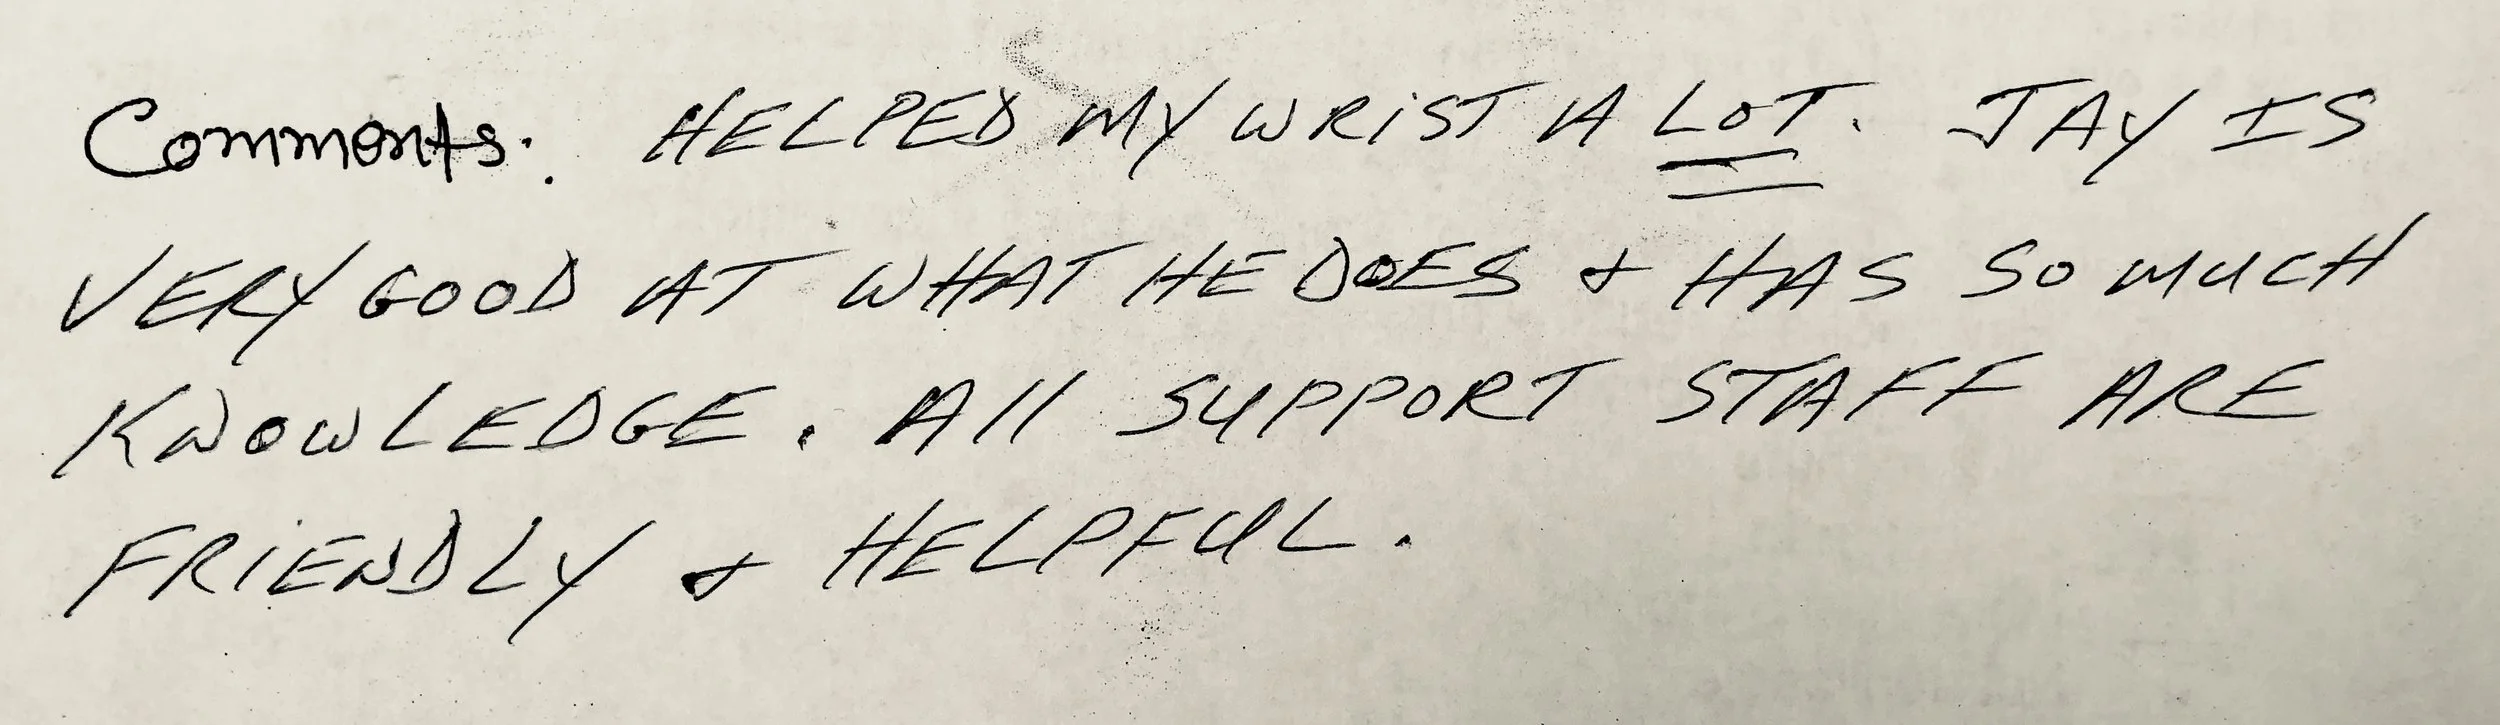 Comments: HELPED MY WRIST A LOT. JAY IS
VERY GOOD AT WHAT HE DOES & HAS SO MUCH
KNOWLEDGE. All SUPPORT STAFF ARE
FRIENDLY & HELPFUL.